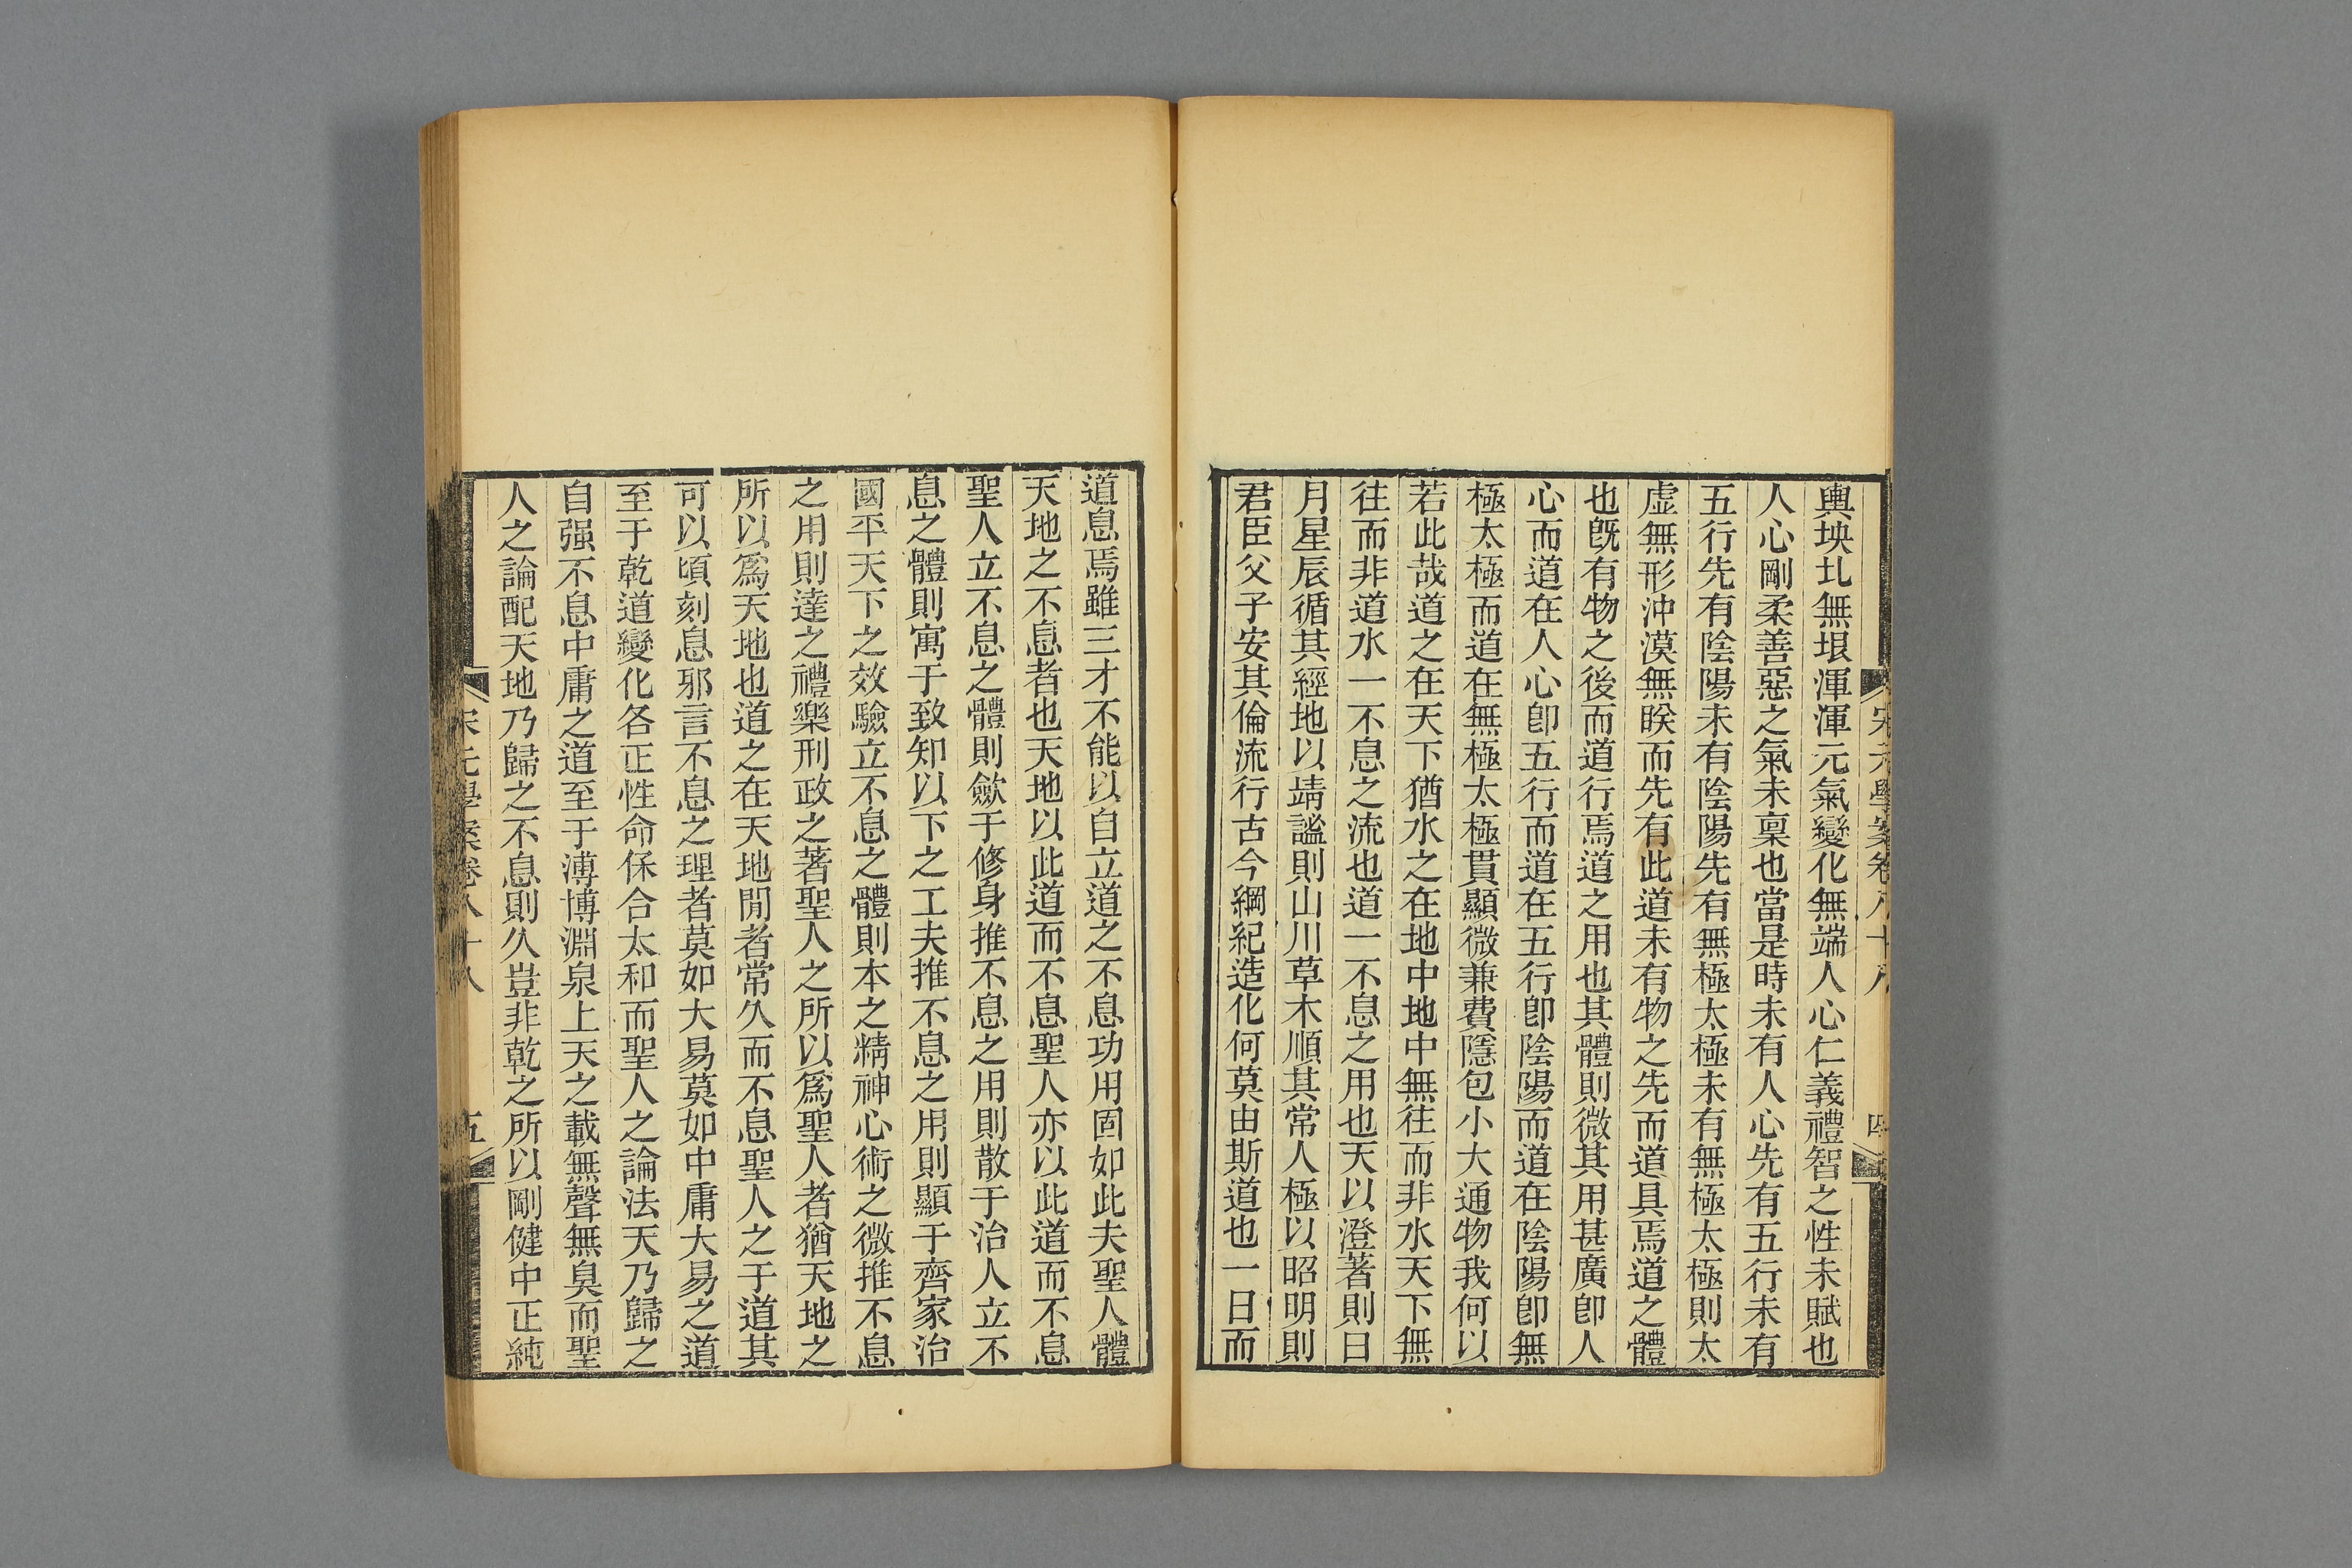 宋元學案卷八十八
四
輿坱圠無垠渾渾元氣變化無端人心仁義禮智之性未賦也
人心剛柔善惡之氣未稟也當是時未有人心先有五行未有
五行先有陰陽未有陰陽先有無極太極未有無極太極則太
虛無形沖漠無眹而先有此道未有物之先而道具焉道之體
也旣有物之後而道行焉道之用也其體則微其用甚廣卽人
心而道在人心卽五行而道在五行卽陰陽而道在陰陽卽無
極太極而道在無極太極貫顯微兼費隱包小大通物我何以
若此哉道之在天下猶水之在地中地中無往而非水天下無
往而非道水一不息之流也道一不息之用也天以澄著則日
月星辰循其經地以靖謐則山川草木順其常人極以昭明則
君臣父子安其倫流行古今綱紀造化何莫由斯道也一日而
道息焉雖三才不能以自立道之不息功用固如此夫聖人體
天地之不息者也天地以此道而不息聖人亦以此道而不息
聖人立不息之體則歛于修身推不息之用則散于治人立不
息之體則寓于致知以下之工夫推不息之用則顯于齊家治
國平天下之效驗立不息之體則本之精神心術之微推不息
之用則達之禮樂刑政之著聖人之所以爲聖人者猶天地之
所以爲天地也道之在天地閒者常久而不息聖人之于道其
可以頃刻息邪言不息之理者莫如大易莫如中庸大易之道
至于乾道變化各正性命保合太和而聖人之論法天乃歸之
自强不息中庸之道至于溥博淵泉上天之載無聲無臭而聖
人之論配天地乃歸之不息則久豈非乾之所以剛健中正純
宋元學案卷八十八
五